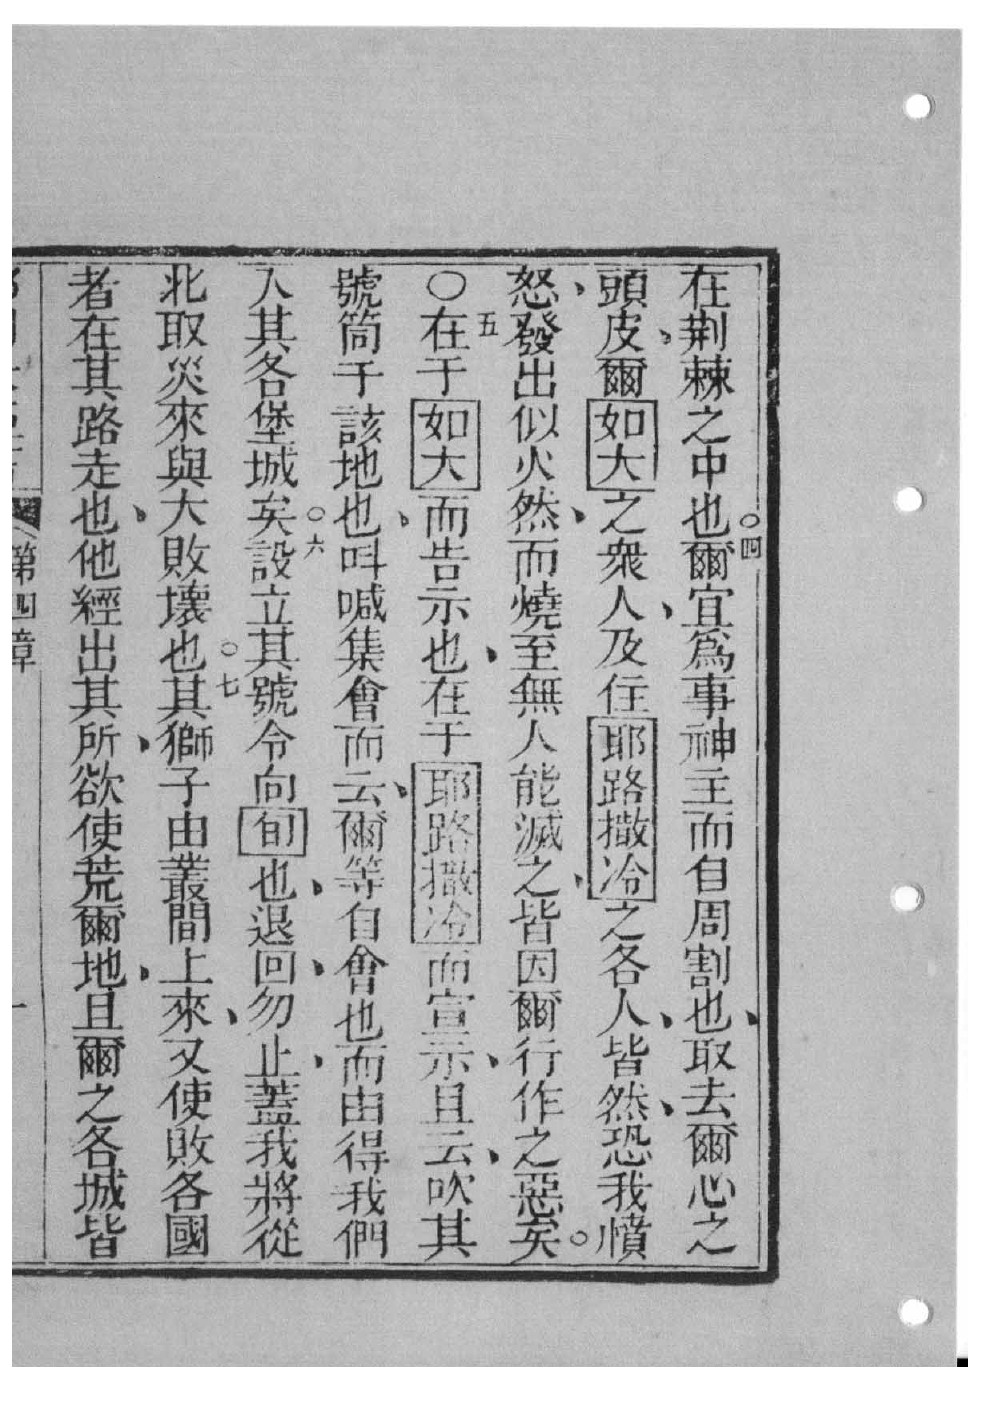 在荆棘之中也。四爾宜爲事神主而自周割也、取去爾心之
頭皮、爾如大之衆人、及住耶路撒冷之各人、皆然、恐我憤
怒、發出似火然、而燒至無人能滅之、皆因爾行作之惡矣。
○五在于如大而告示也、在于耶路撒冷而宣示、且云、吹其
號筒于該地也、叫喊集會而云、爾等自會也而由得我們
入其各堡城矣。六設立其號令向旬也、退回、勿止、蓋我將從
北取災來與大敗壞也。七其獅子由叢間上來、又使敗各國
者在其路走也、他經出其所、欲使荒爾地、且爾之各城皆
第四章